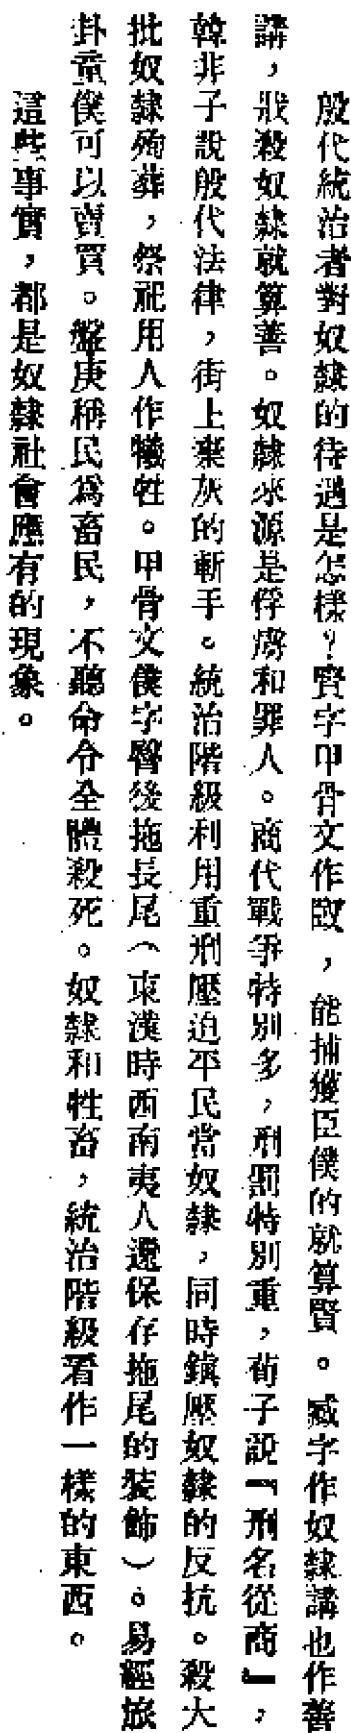 殷代統治者對奴隸的待遇是怎樣？賢字甲骨文作臤，能捕獲臣僕的就算賢。臧字作奴隸講也作善
講，戕殺奴隸就算善。奴隸來源是俘虜和罪人。商代戰爭特別多，刑罰特別重，荀子說『刑名從商』，
韓非子說殷代法律，街上棄灰的斬手。統治階級利用重刑壓迫平民當奴隸，同時鎮壓奴隸的反抗。殺大
批奴隸殉葬，祭祀用人作犧牲。甲骨文僕字臀後拖長尾（東漢時西南夷人還保存拖尾的裝飾）。易經旅
卦童僕可以賣買。盤庚稱民爲畜民，不聽命令全體殺死。奴隸和牲畜，統治階級看作一樣的東西。
這些事實，都是奴隸社會應有的現象。